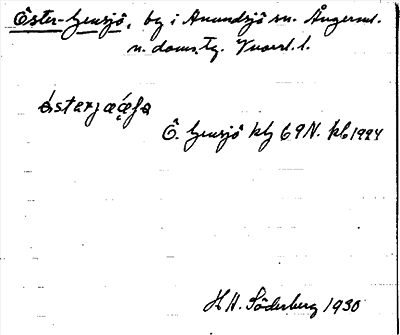 Öster-Gensjö, by i Anundsjö sn. Ångerml.
n. doms.tg. Vnorrl. l.
Ö. Gensjö kbg 69N. kb 1924
H. H. Söderberg 1930